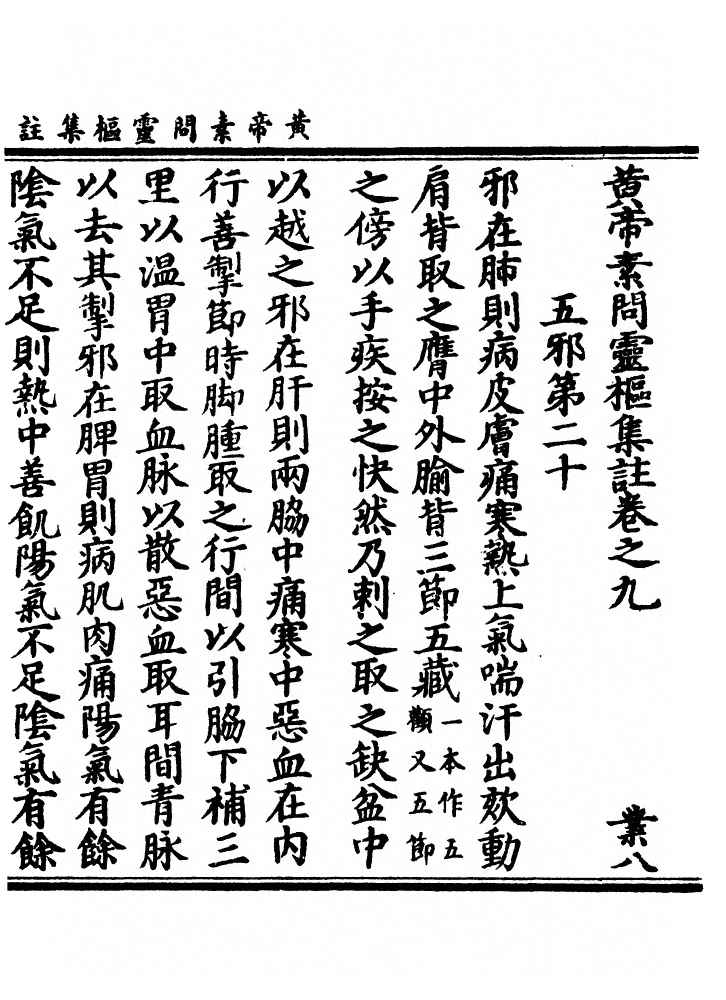 黃帝素問靈樞集註
黃帝素問靈樞集註卷之九 業八
五邪第二十
邪在肺則病皮膚痛寒熱上氣喘汗出欬動
肩背取之膺中外腧背三節五藏一本作五顀又五節
之傍以手疾按之快然乃刺之取之缺盆中
以越之邪在肝則兩脇中痛寒中惡血在內
行善掣節時脚腫取之行間以引脇下補三
里以温胃中取血脉以散惡血取耳間青脉
以去其掣邪在脾胃則病肌肉痛陽氣有餘
陰氣不足則熱中善飢陽氣不足陰氣有餘